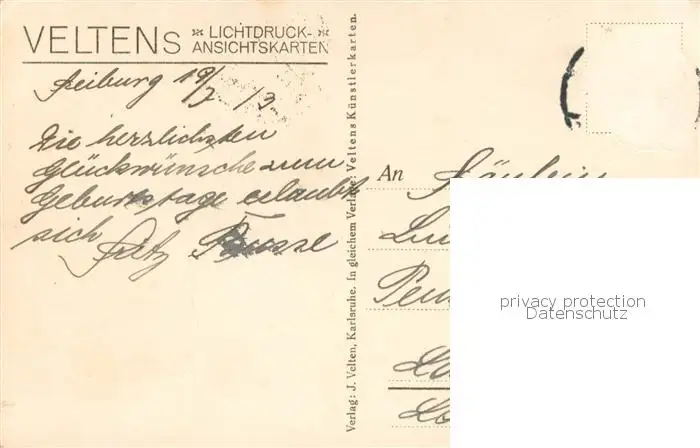 VELTENs * LICHTDRUCK- *
ANSICHTSKARTEN
Freiburg 19/7 13.
Die herzlichsten
Glückwünsche zum
Geburtstage erlaubt
sich Fritz
Verlag: J. Velten, Karlsruhe. In gleichem Verlage: Veltens Künstlerkarten.
An Fräulein
privacy protection
Datenschutz